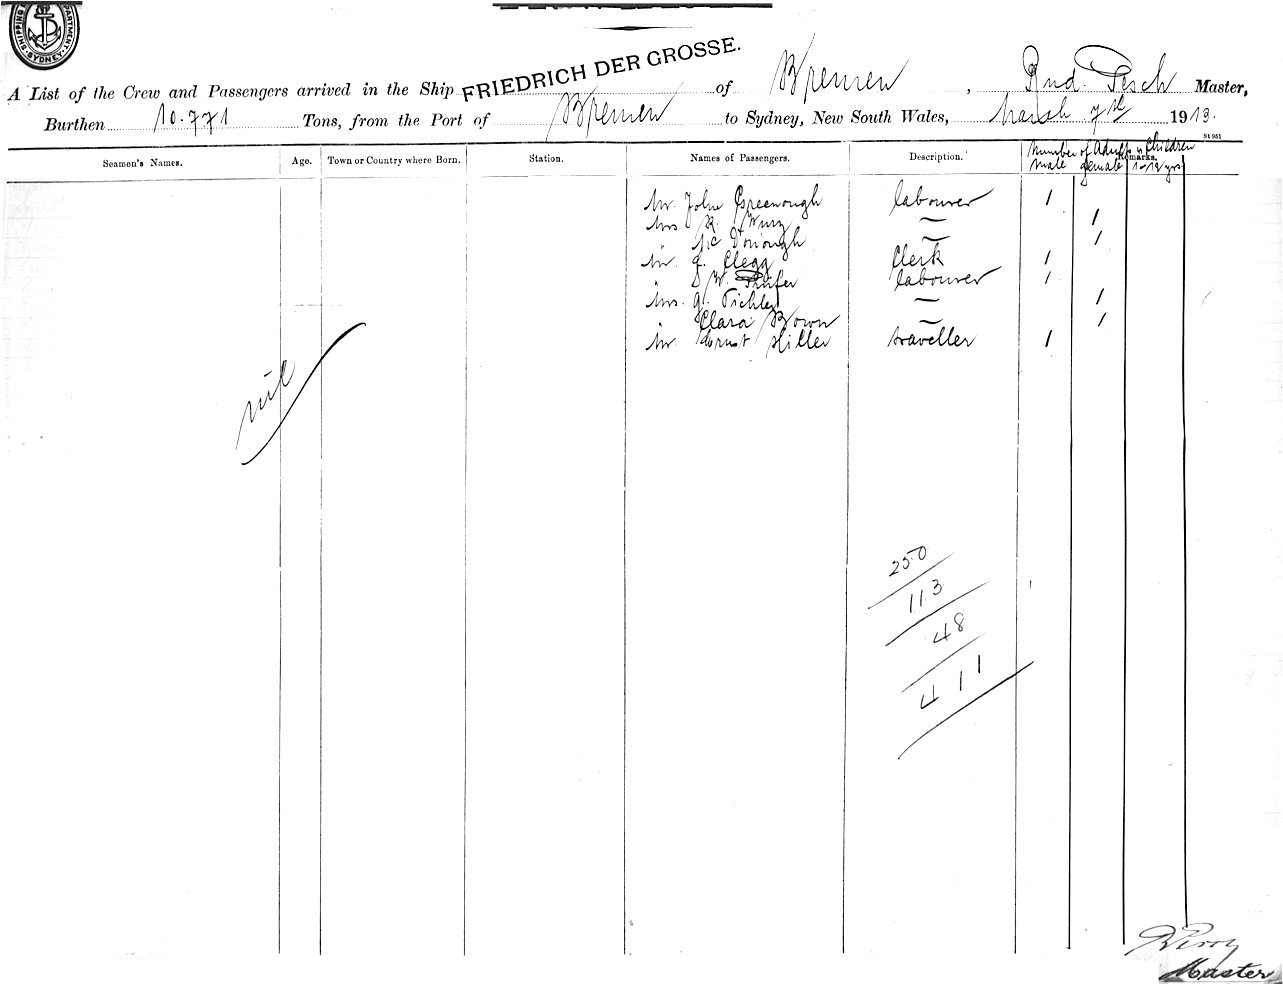 SHIPPING DEPARTMENT SYDNEY
FRIEDRICH DER GROSSE.
A List of the Crew and Passengers arrived in the Ship of Bremen, Rud. Pesch Master,
Burthen 10.771 Tons, from the Port of Bremen to Sydney, New South Wales, March 7th 1913.
St 951
Seamen's Names. Age. Town or Country where Born. Station. Names of Passengers. Description. Remarks.
Number of Adults Children
Male female 1-12 yrs
Mr. John Greenough labourer 1
Mrs R. Wurz — 1
" Mc Donough — 1
Mr. J. Clegg Clerk 1
" W. labourer 1
Mrs. G. Pichler — 1
" Clara Bown — 1
Mr Ernst Hiller traveller 1
nil
250
113
48
411
Master